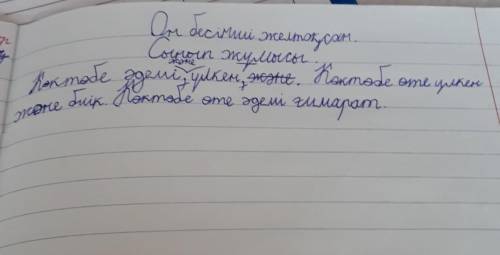 Он бесінші желтоқсан.
Сынып жұмысы.
Көктөбе әдемі және үлкен, ~~және~~. Көктөбе өте үлкен
және биік. Көктөбе өте әдемі ғимарат.